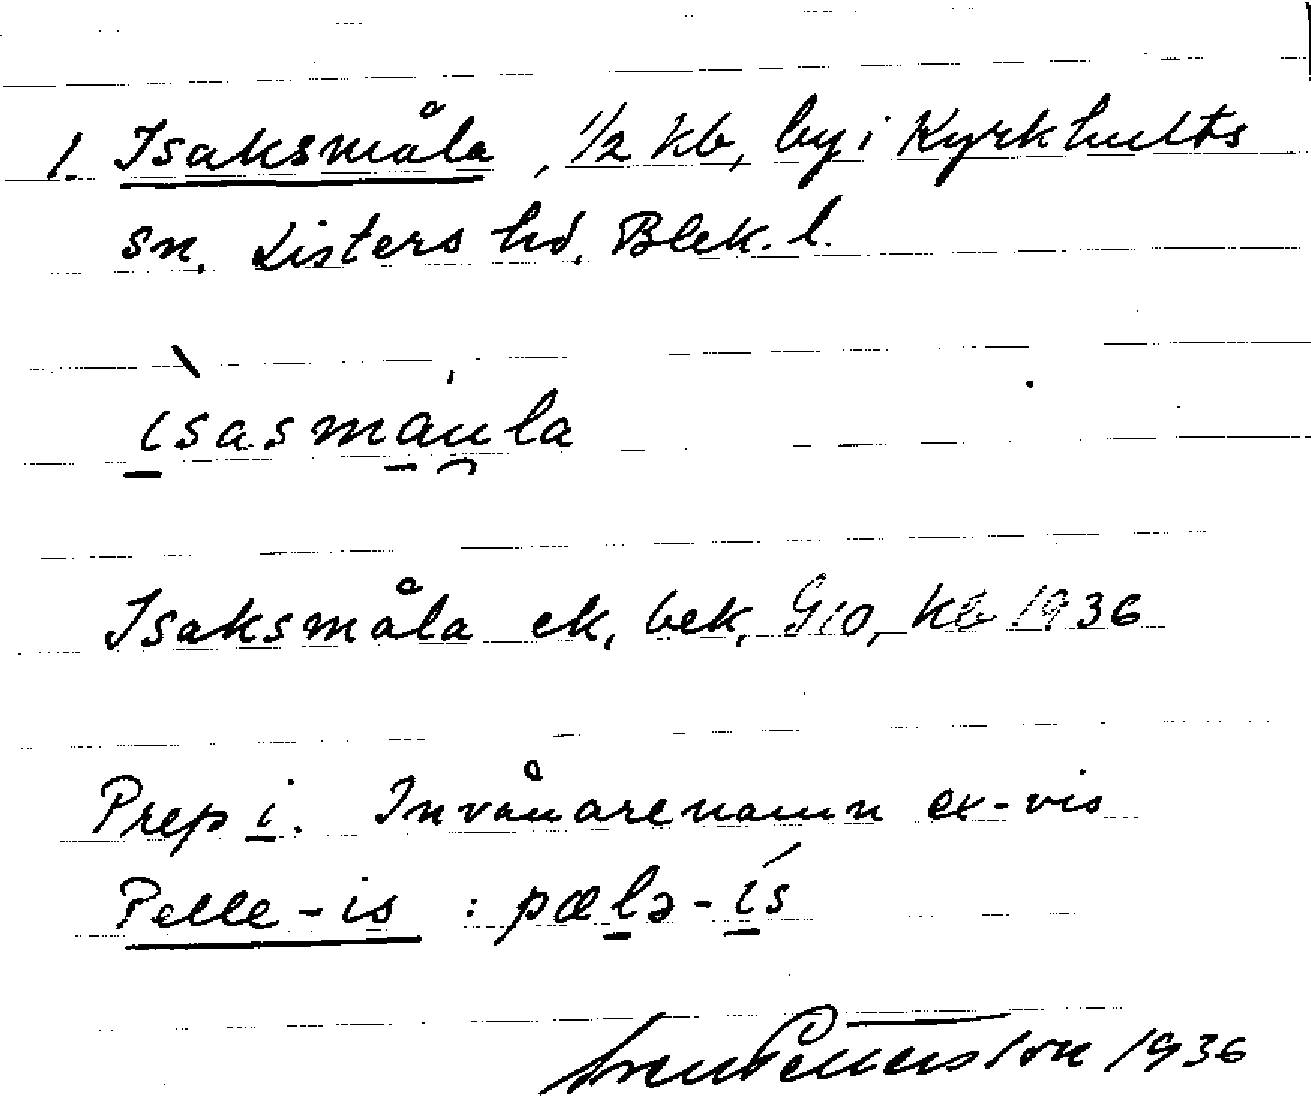 1. Isaksmåla, 1/2 kb, by i Kyrkhults
sn. Listers hd. Blek. l.
ìsasmàu̯la
Isaksmåla ek, bek, G10, kb 1936
Prep i. Invånarenamn ex-vis
Pelle-is : pælə-ís
1936